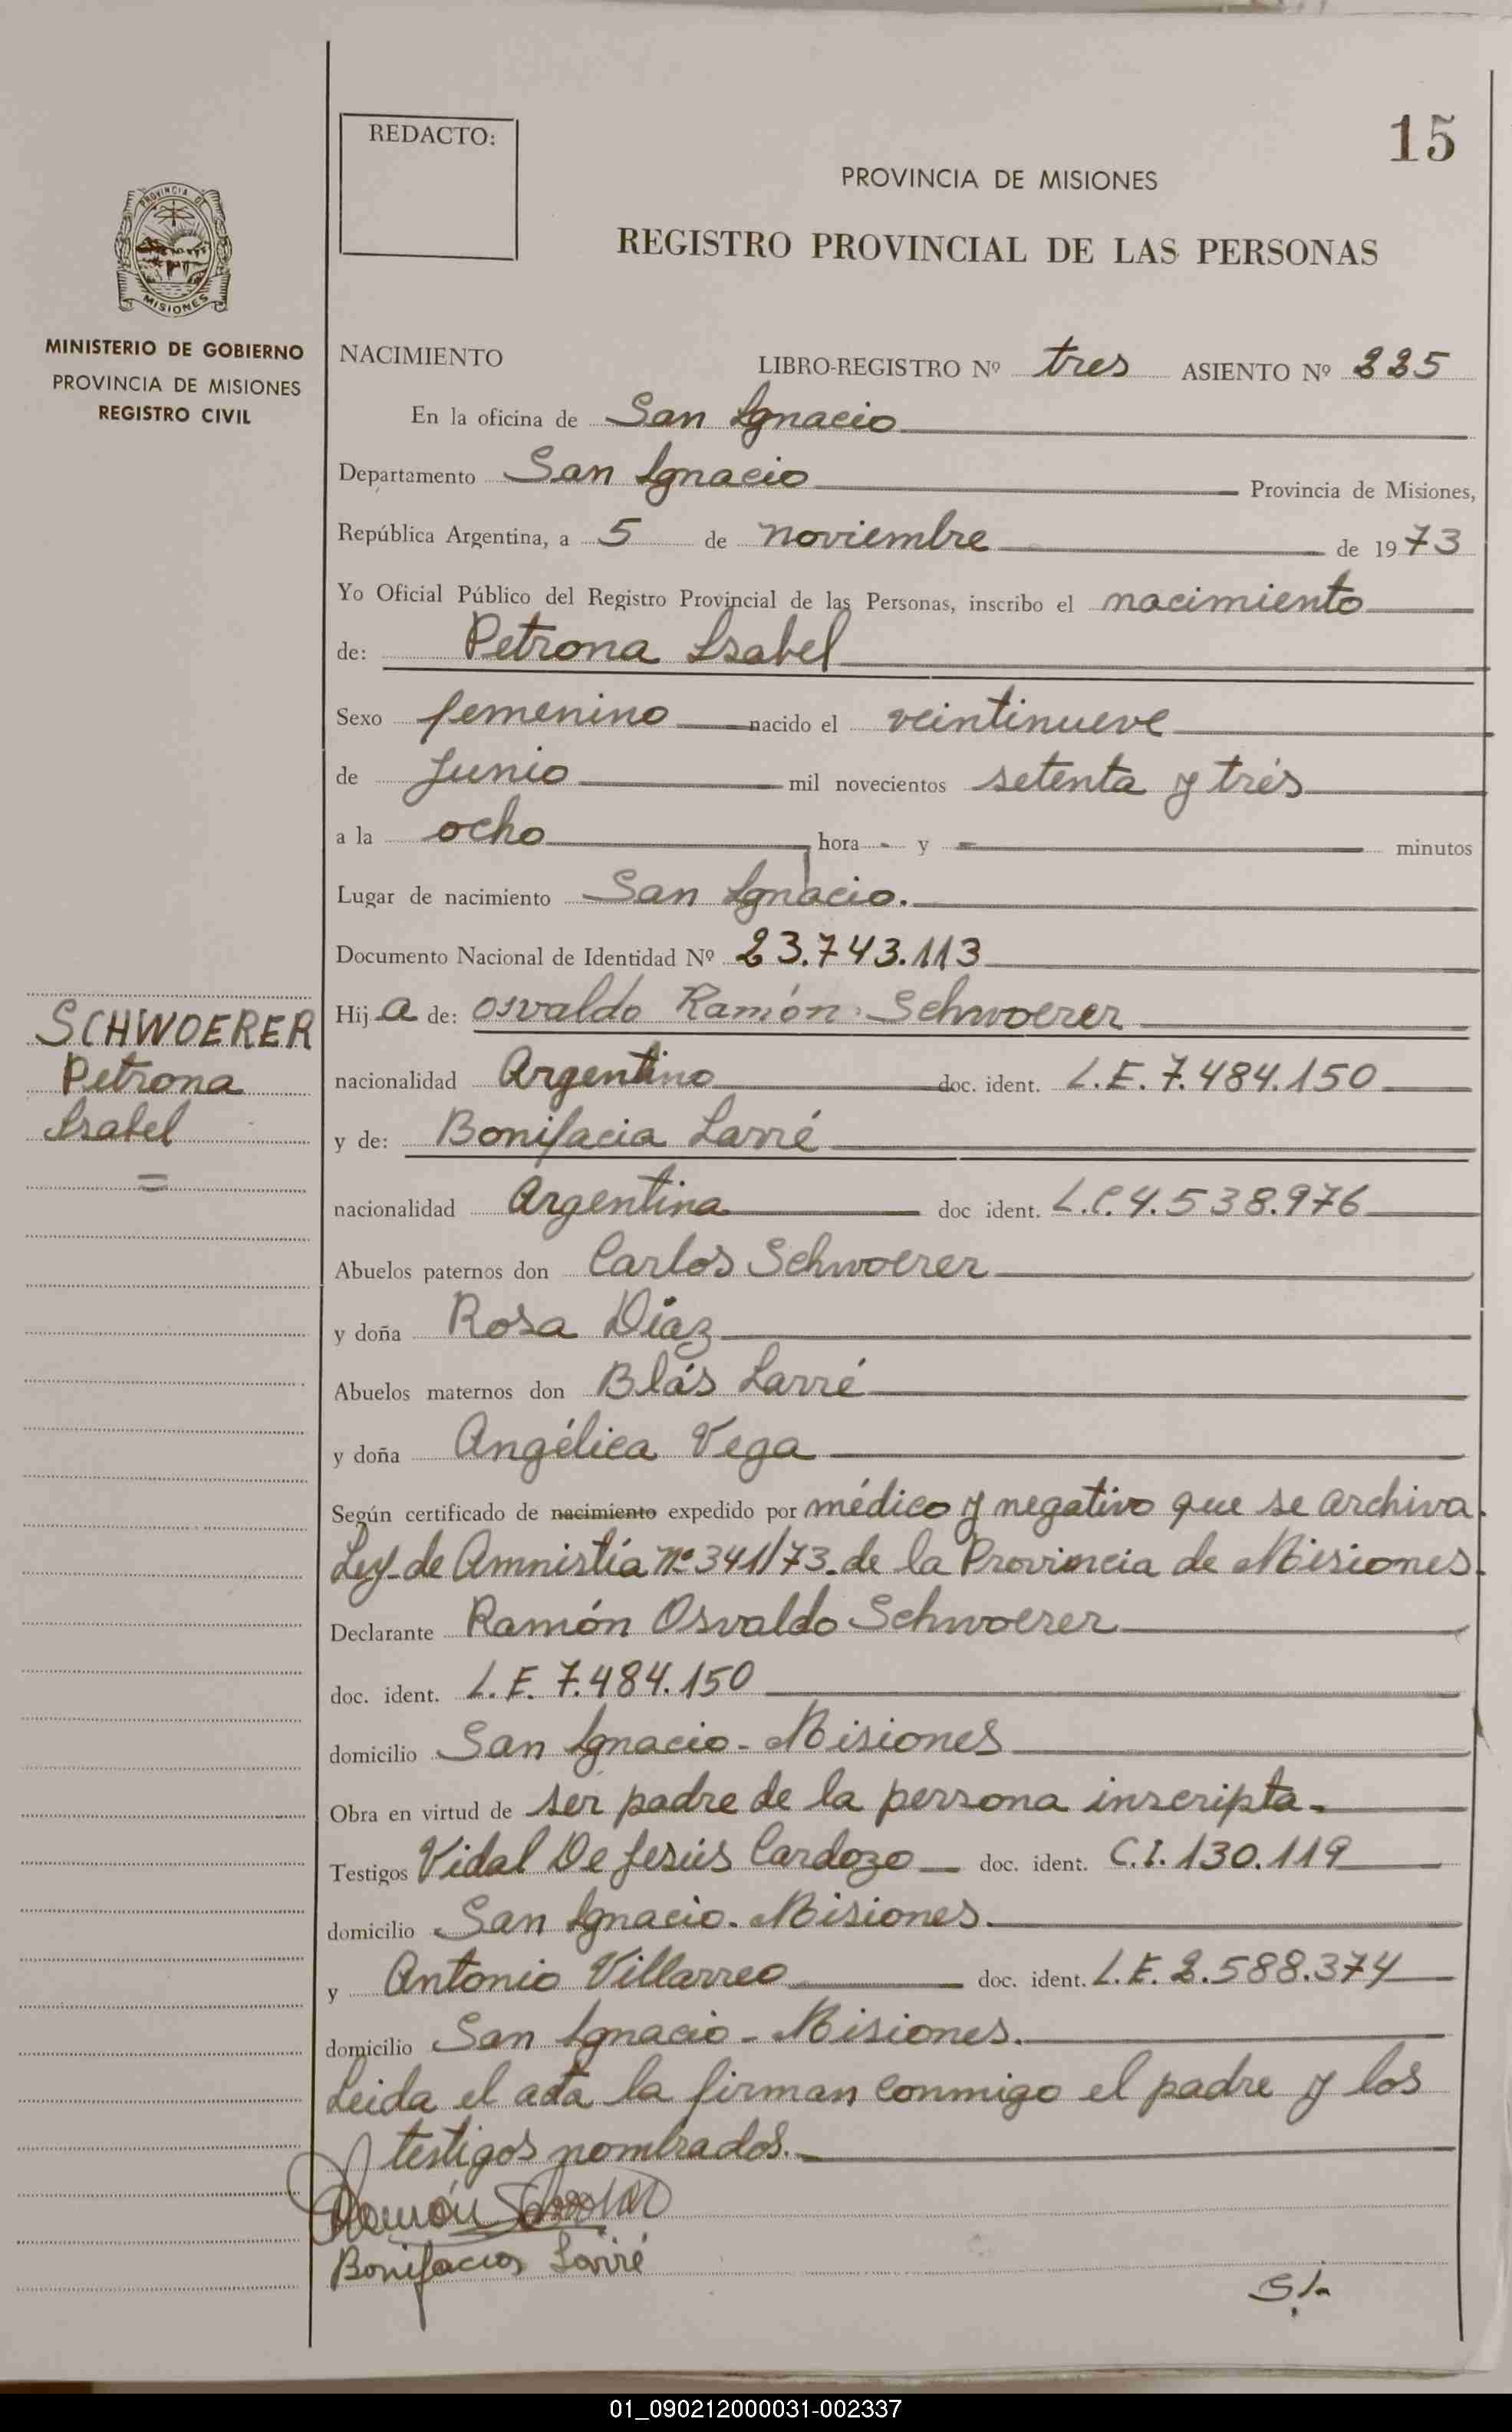 REDACTO:
15
PROVINCIA DE MISIONES
REGISTRO PROVINCIAL DE LAS PERSONAS
PROVINCIA DE
MISIONES
MINISTERIO DE GOBIERNO
PROVINCIA DE MISIONES
REGISTRO CIVIL
NACIMIENTO LIBRO-REGISTRO Nº tres ASIENTO Nº 225
En la oficina de San Ignacio
Departamento San Ignacio Provincia de Misiones,
República Argentina, a 5 de noviembre de 1973
Yo Oficial Público del Registro Provincial de las Personas, inscribo el nacimiento
de: Petrona Isabel
Sexo femenino nacido el veintinueve
de Junio mil novecientos setenta y trés
a la ocho hora - y = minutos
Lugar de nacimiento San Ignacio.
Documento Nacional de Identidad Nº 23.743.113
SCHWOERER
Petrona
Isabel
=
Hij a de: Osvaldo Ramón Schwoerer
nacionalidad Argentino doc. ident. L.E. 7.484.150
y de: Bonifacia Larré
nacionalidad Argentina doc ident. L.C. 4.538.976
Abuelos paternos don Carlos Schwoerer
y doña Rosa Díaz
Abuelos maternos don Blás Larré
y doña Angélica Vega
Según certificado de nacimiento expedido por médico y negativo que se archiva.
Ley de Amnistía nº 341/73. de la Provincia de Misiones.
Declarante Ramón Osvaldo Schwoerer
doc. ident. L.E. 7.484.150
domicilio San Ignacio - Misiones
Obra en virtud de ser padre de la persona inscripta.
Testigos Vidal De Jesús Cardozo doc. ident. C.I. 130.119
domicilio San Ignacio. Misiones.
y Antonio Villarreo doc. ident. L.E. 2.588.374
domicilio San Ignacio - Misiones.
Leida el acta la firman conmigo el padre y los
testigos nombrados.
Ramón
Bonifacia Larré
S/.
01_090212000031-002337